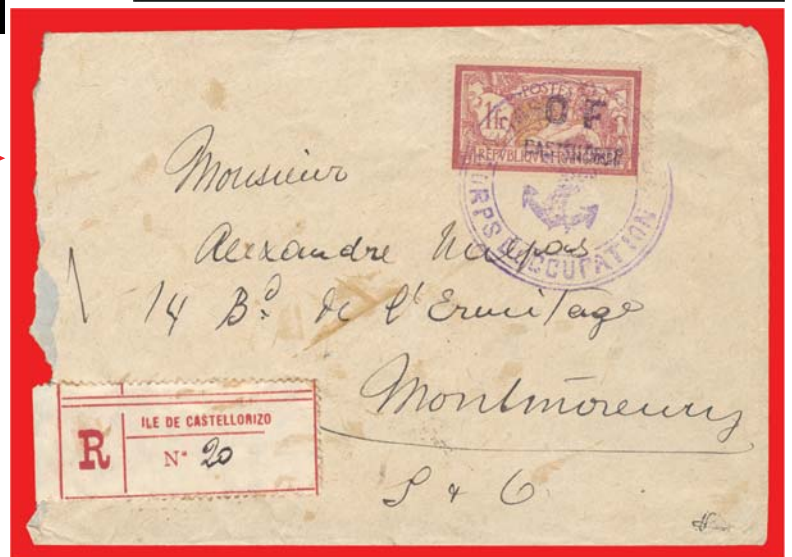 POSTES
1fr
O F
CASTELLORIZO
REPVBLIQVE FRANÇAISE
CORPS D'OCCUPATION
Monsieur
Alexandre
14 Bd. de l'Ermitage
Montmorency
S & O.
ILE DE CASTELLORIZO
R
N° 20